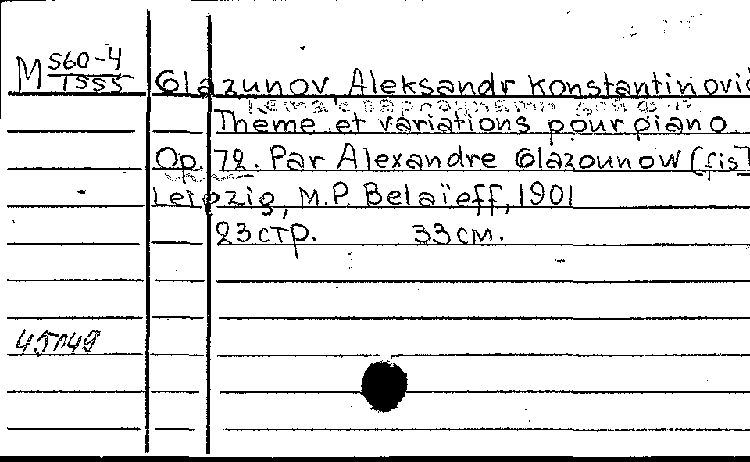 M 560-4
1555
Glazunov, Aleksandr Konstantinovič
Thème et variations pour piano
Op. 72. Par Alexandre Glazounow (fis
Leipzig, M.P. Belaïeff, 1901
23 стр. 33 см.